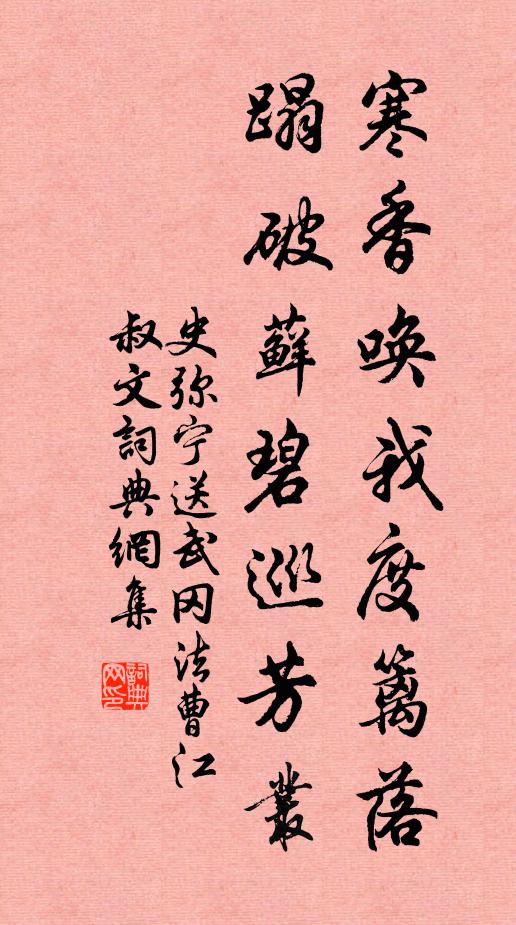 寒香唤我度篱落
蹋破藓碧巡芳丛
史弥宁送武冈法曹江
叔文词典网集
詞典
网印